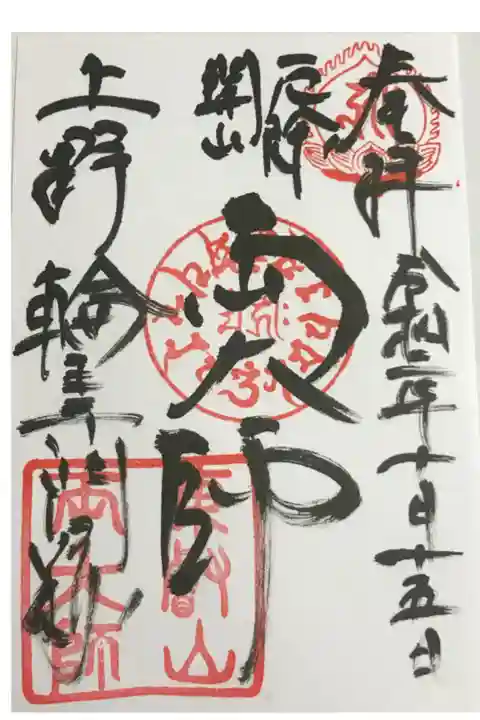 奉拝
令和二年十月十五日
厄除
開山
両大師
上野輪王寺門跡
東叡山
両大師